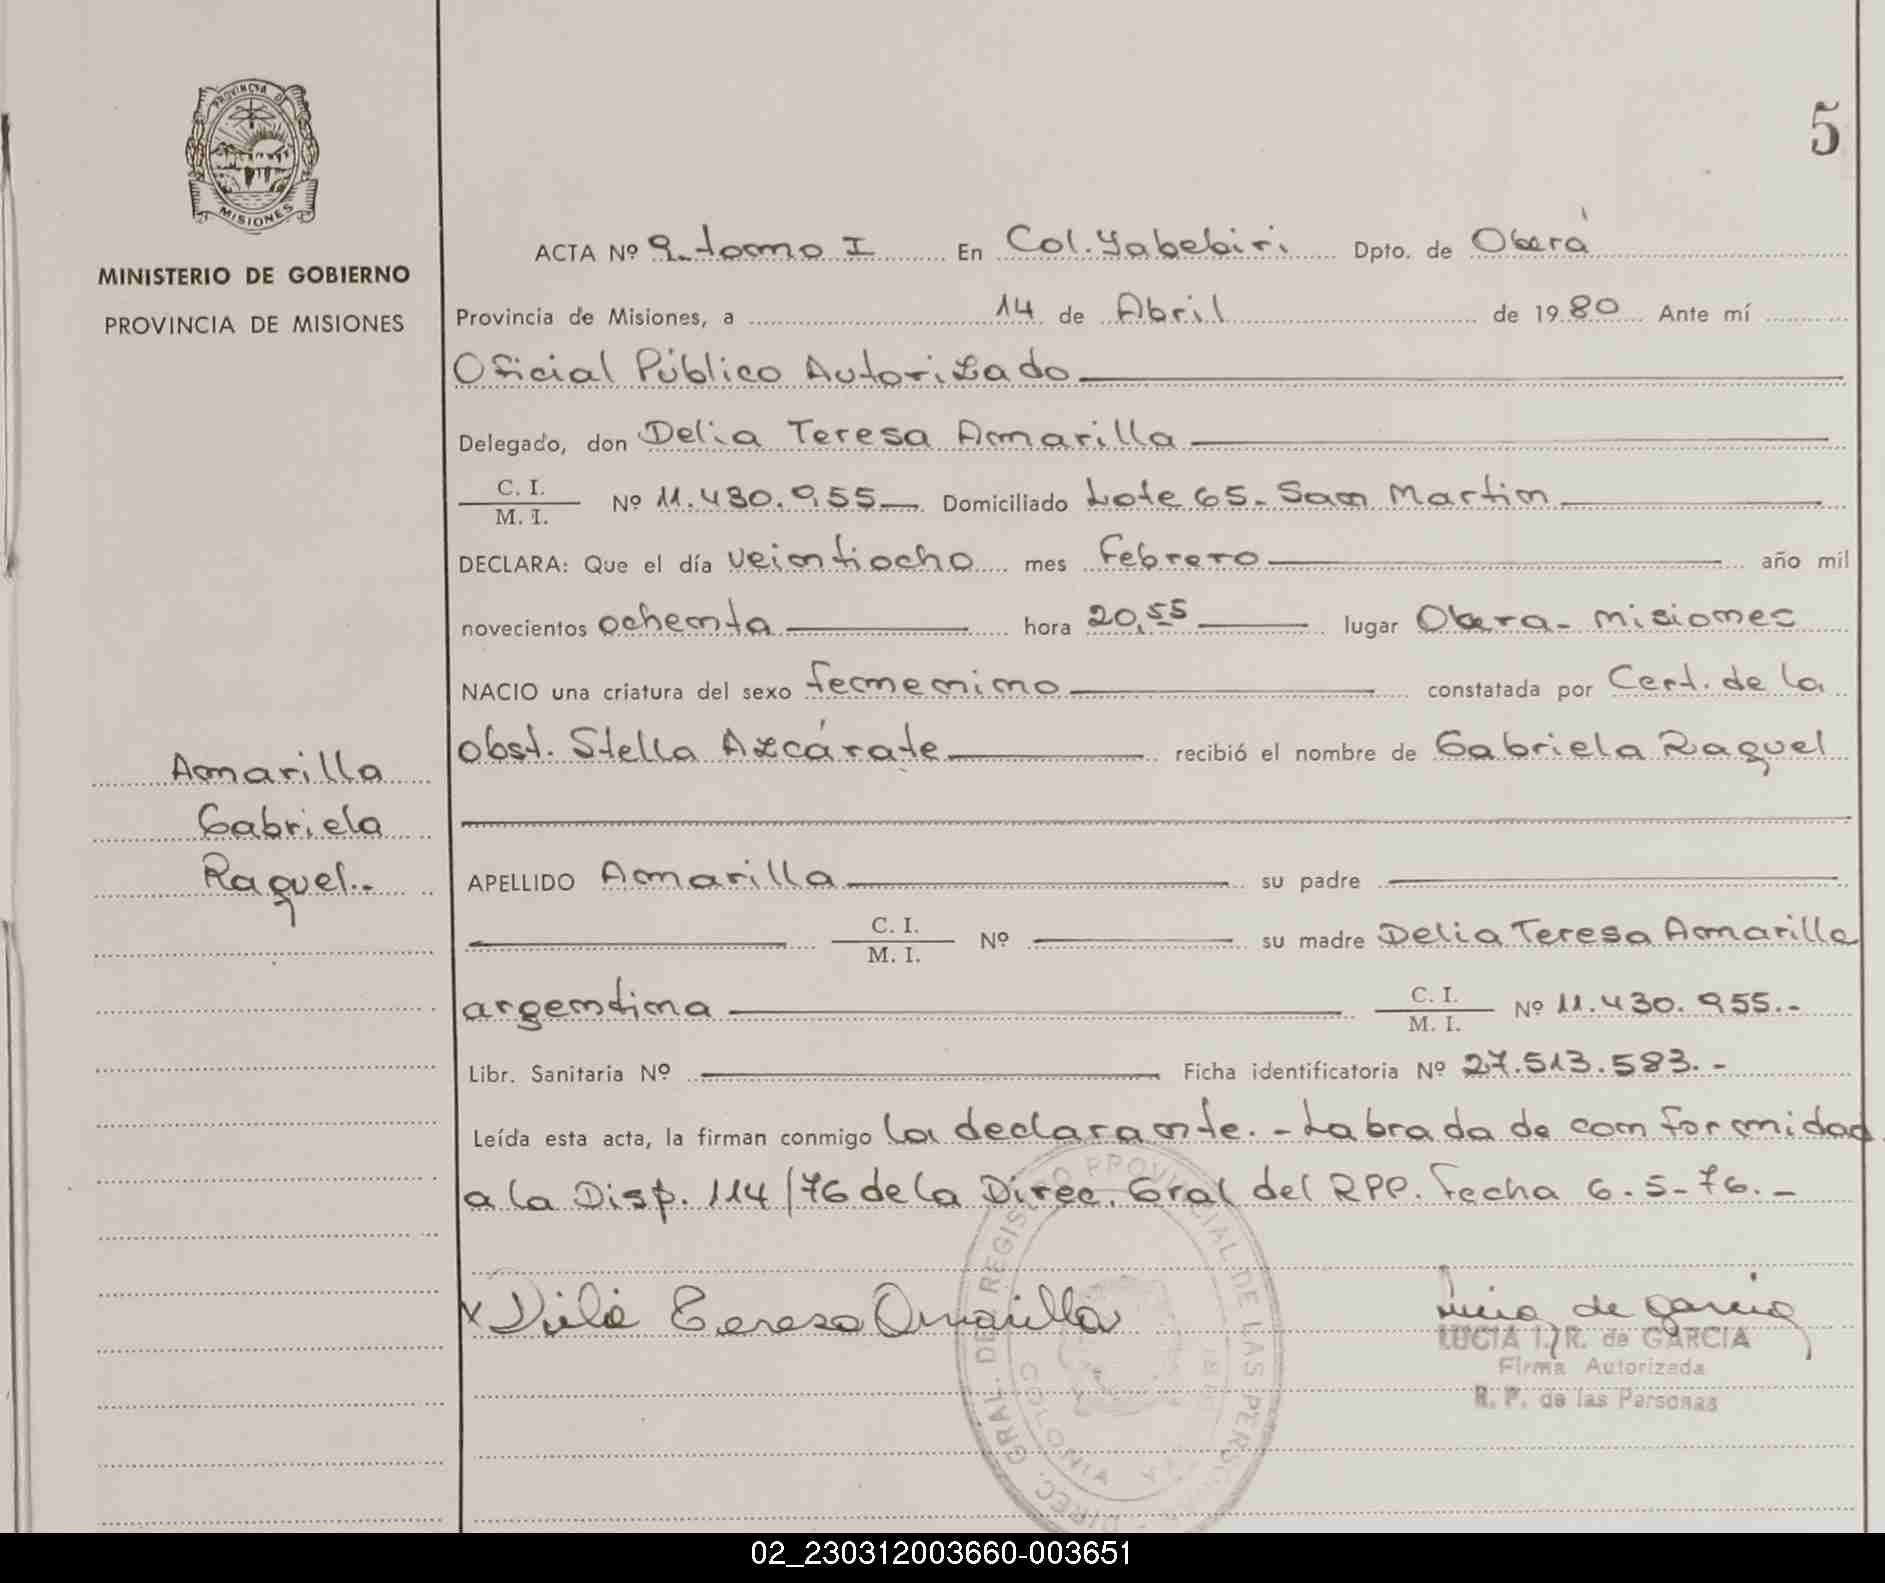 PROVINCIA DE
MISIONES
MINISTERIO DE GOBIERNO
PROVINCIA DE MISIONES
5
ACTA Nº 9 tomo I En Col. Yabebiri Dpto. de Oberá
Provincia de Misiones, a 14 de Abril de 1980 Ante mí
Oficial Público Autorizado
Delegado, don Delia Teresa Amarilla
C. I.
M. I. Nº 11.430.955 Domiciliado Lote 65 - San Martin
DECLARA: Que el día veintiocho mes Febrero año mil
novecientos ochenta hora 20,55 lugar Obera - misiones
NACIO una criatura del sexo femenino constatada por Cert. de la
obst. Stella Azcárate recibió el nombre de Gabriela Raquel
Amarilla
Gabriela
Raquel.-
APELLIDO Amarilla su padre
C. I.
M. I. Nº su madre Delia Teresa Amarilla
argentina C. I.
M. I. Nº 11.430.955.-
Libr. Sanitaria Nº Ficha identificatoria Nº 27.513.583.-
Leída esta acta, la firman conmigo la declarante.- Labrada de conformidad
a la Disp. 114/76 de la Direc. Gral del RPP. Fecha 6-5-76.-
x Delia Teresa Amarilla
Lucia de Garcia
LUCIA I. R. de GARCIA
Firma Autorizada
R. P. de las Personas
DIREC. GRAL. DEL REGISTRO PROVINCIAL DE LAS PERSO
COLONIA YA
02_230312003660-003651